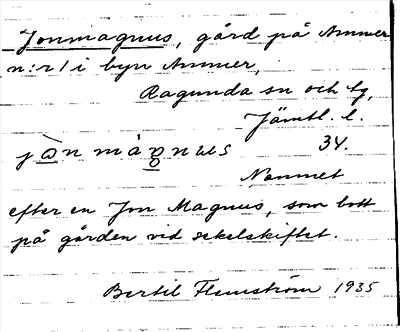 Jonmagnus, gård på Ammer
n:r 1 i byn Ammer,
Ragunda sn och tg,
Jämtl. l.
jo̊̀n màgnus 34.
Namnet
efter en Jon Magnus, som bott
på gården vid sekelskiftet.
Bertil Flemström 1935